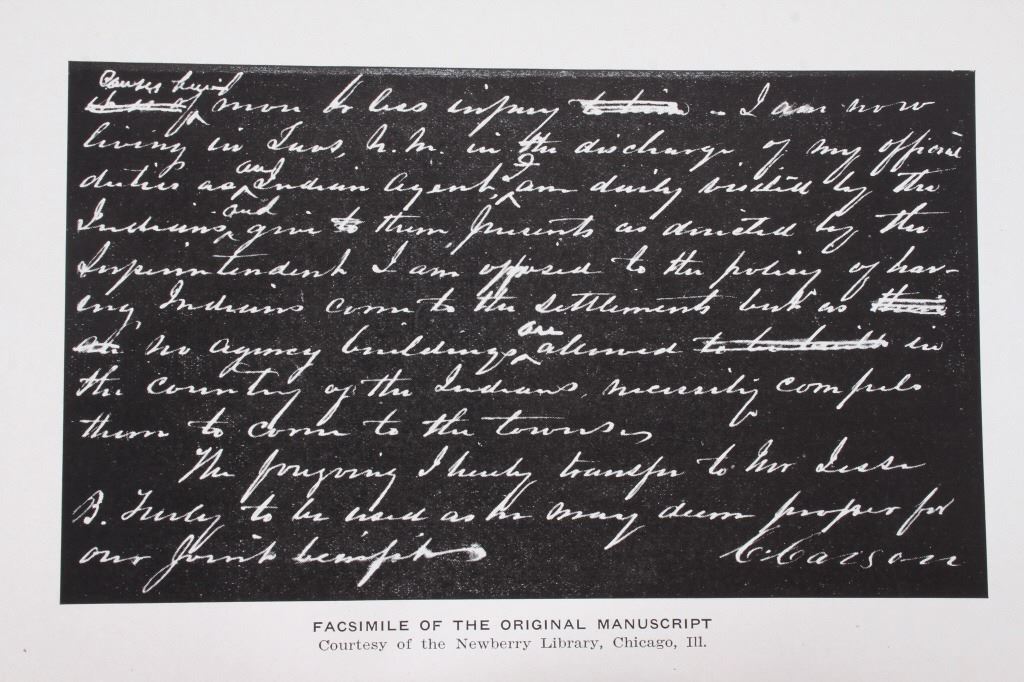 causes being
more or less injury — I am now
living in Taos, N.M. in the discharge of my official
duties as an Indian Agent, I am daily visited by the
Indians, and give to them presents as directed by the
Superintendent I am opposed to the policy of hav-
ing Indians come to the settlements but as their
no agency buildings are allowed to be built in
the country of the Indians, necessity compels
them to come to the towns
The foregoing I hereby transfer to Mr Jesse
B. Turly to be used as he may deem proper for
our Joint benefit
C. Carson
FACSIMILE OF THE ORIGINAL MANUSCRIPT
Courtesy of the Newberry Library, Chicago, Ill.